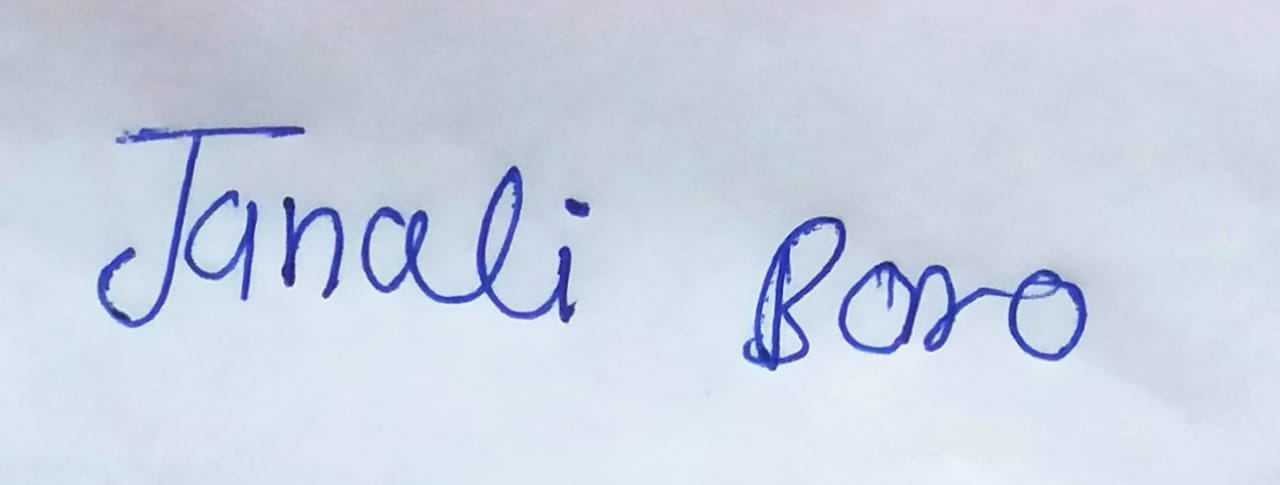 Janali Boro